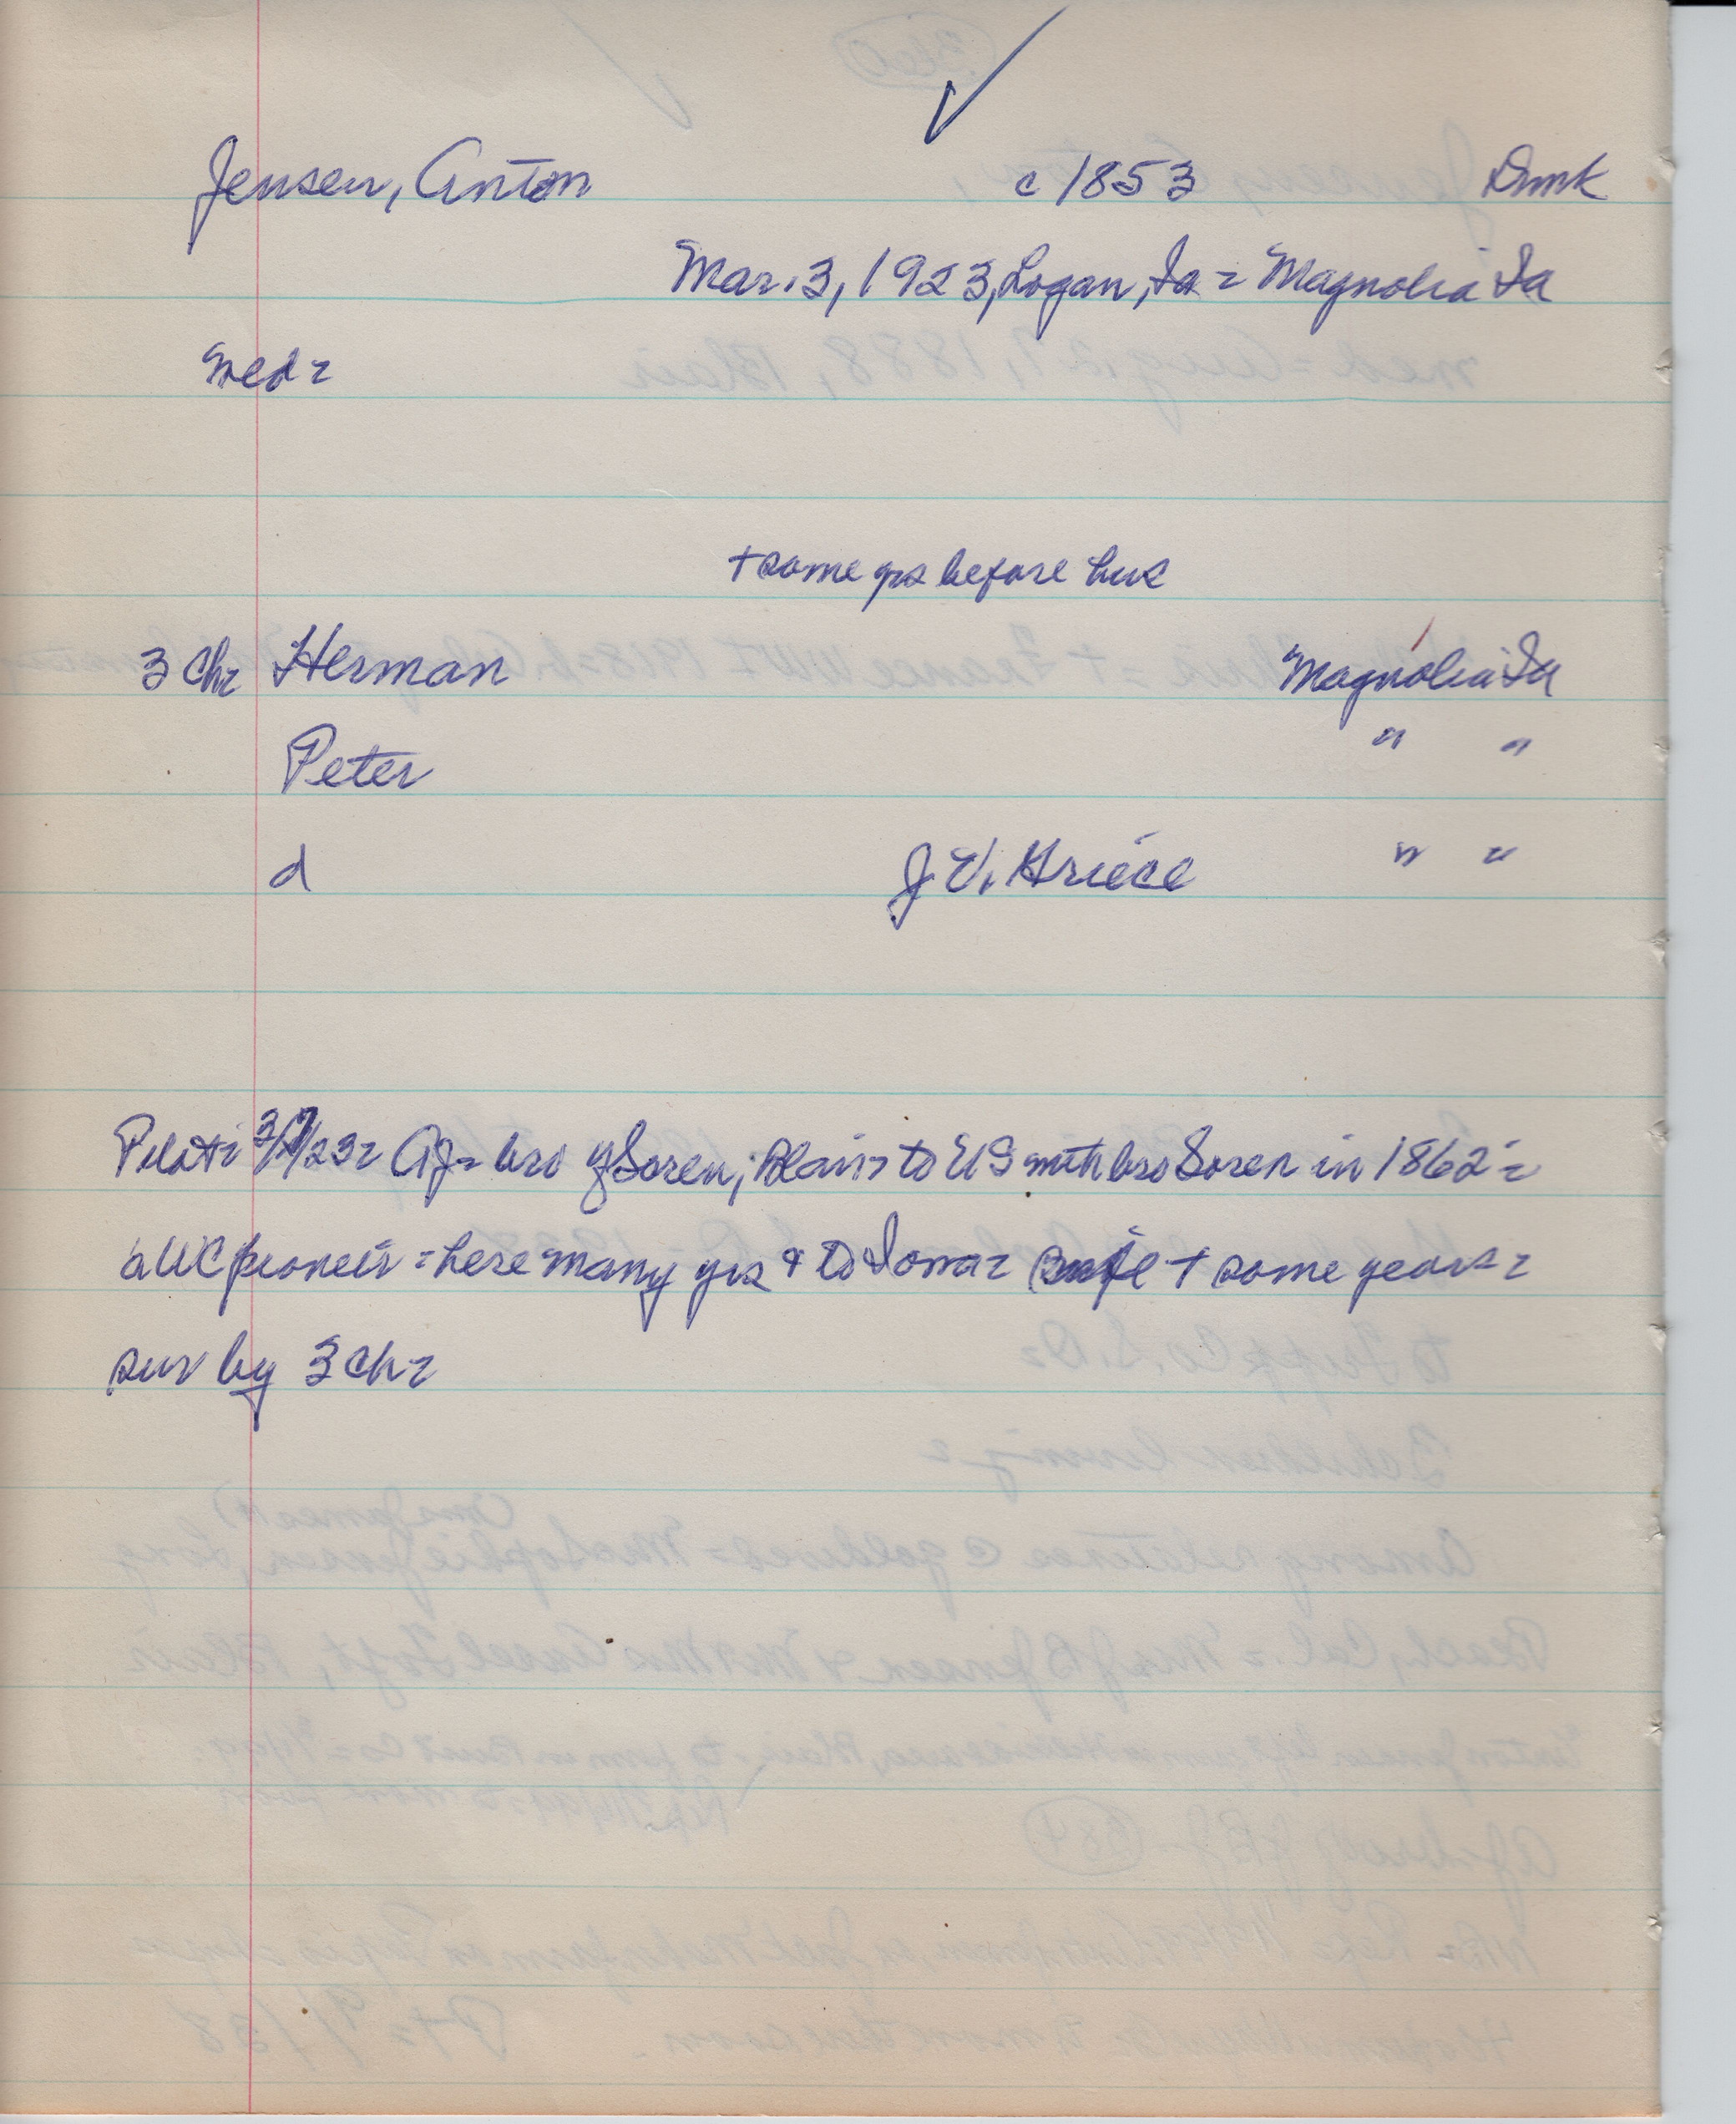 Jensen, Anton c 1853 Dnmk
Mar. 3, 1923, Logan, Ia = Magnolia Ia
med =
+ some yrs before hus
3 Ch = Herman Magnolia Ia
Peter " "
d J. V. Griece " "
Pilot = 3/7/23 = AJ = bro of Soren, Blair = to US with bro Soren in 1862 =
a WC pioneer = here many yrs & to Iowa = wife + some years =
sur by 3 ch =